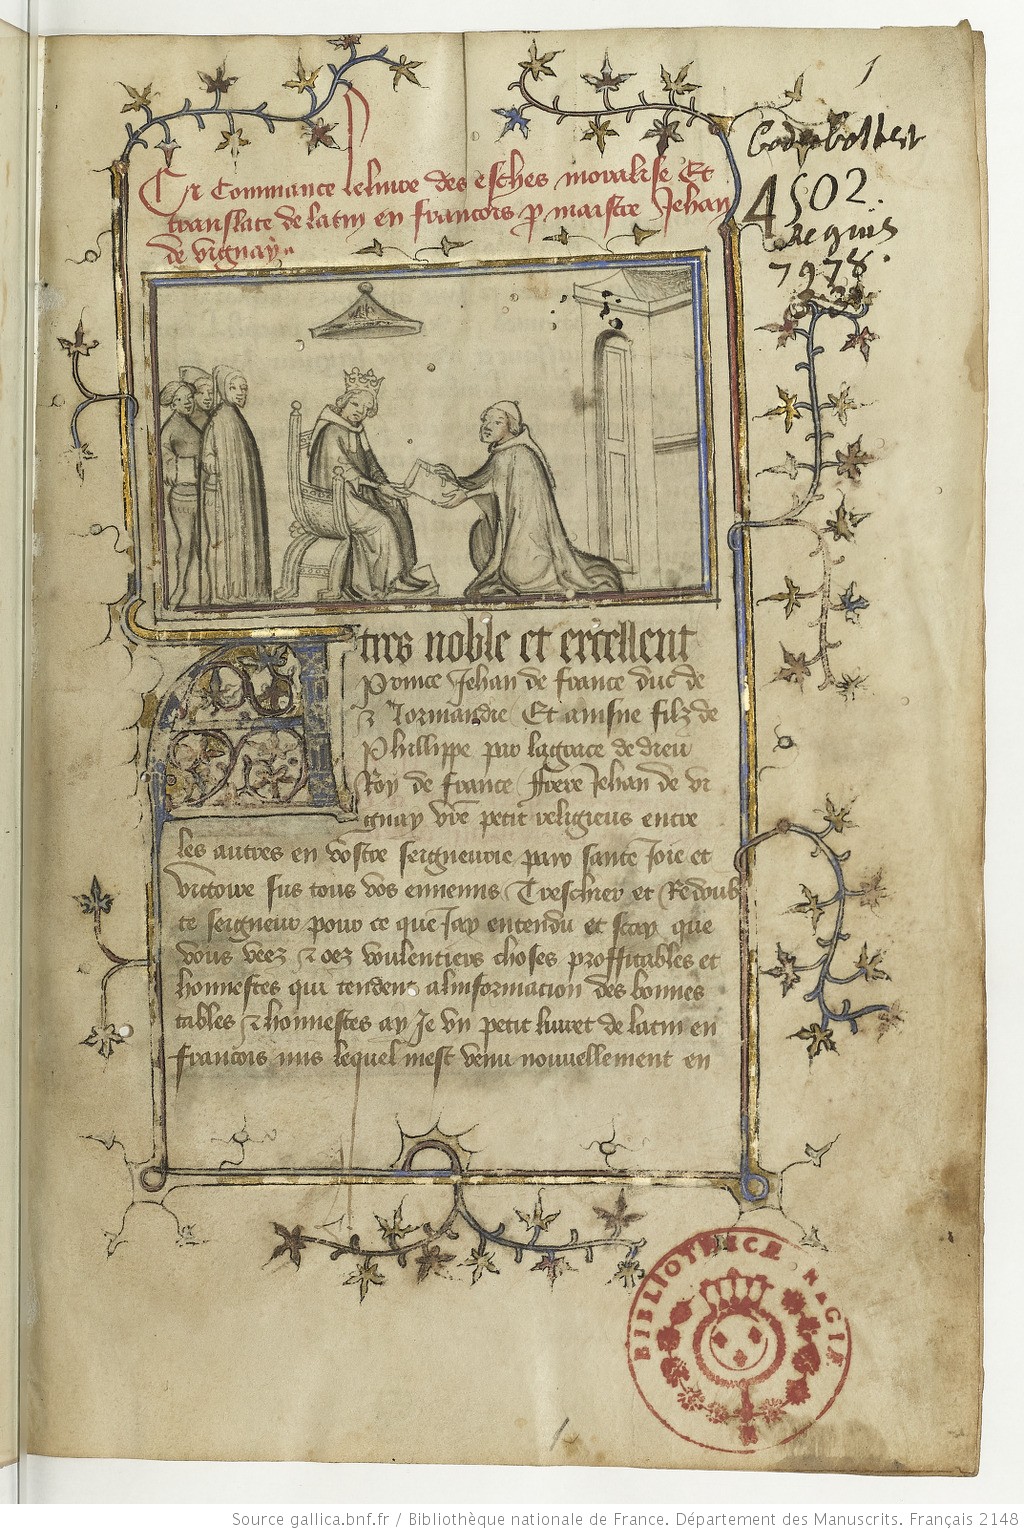 1
Code Colbert
4502.
Regius
7978.
Cy Commance le livre des esches moralise Et
translate de latin en francois p maistre Jehan
de vignay
tres noble et excellent
Prince Jehan de france duc de
Normandie Et ainsne filz de
Phillippe par la grace de dieu
Roy de france Frere Jehan de vi
gnay vre petit religieus entre
les autres en vostre seigneurie paix sante Joie et
victoire sus tous vos ennemis Treschier et Redoub
te seigneur pour ce que Jay entendu et scay que
vous veez et oez voulentiers choses proffitables et
honnestes qui tendent alinformacion des bonnes
tables et honnestes ay Je un petit livret de latin en
francois mis lequel mest venu nouvellement en
BIBLIOTHECÆ REGIÆ
1
Source gallica.bnf.fr / Bibliothèque nationale de France. Département des Manuscrits. Français 2148